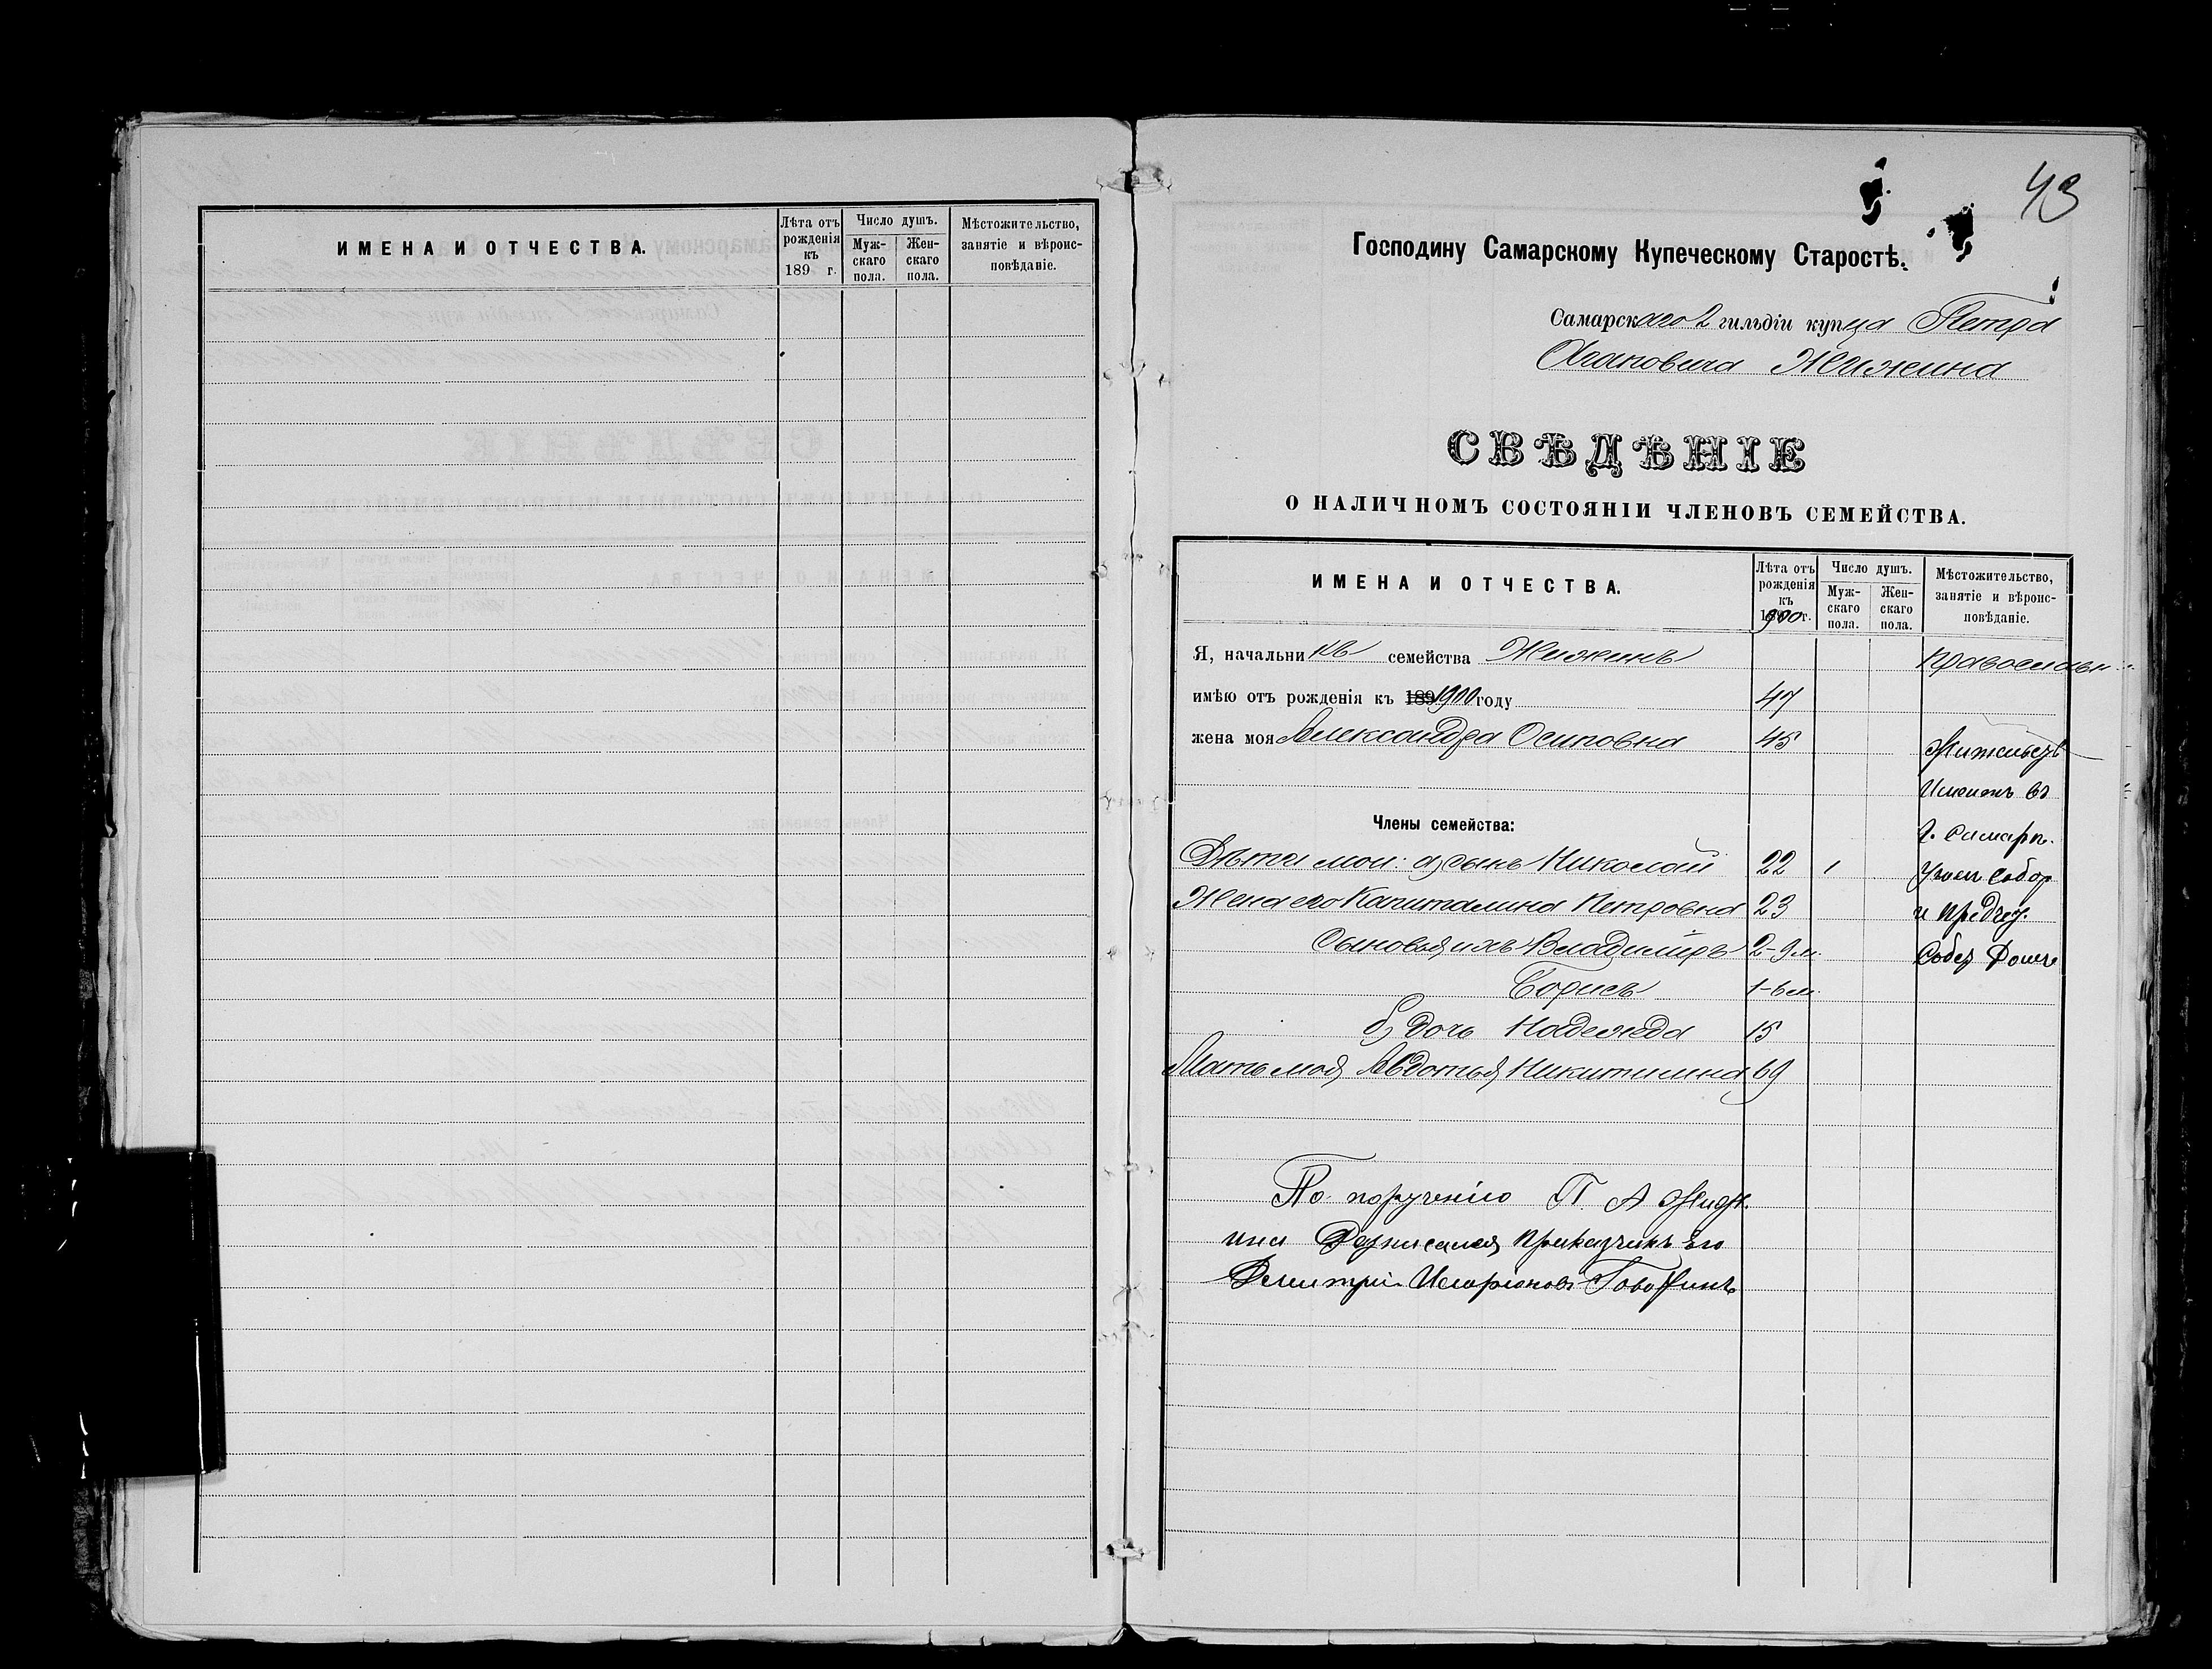 ИМЕНА И ОТЧЕСТВА.
Лѣта отъ рожденія къ 189 г.
Число душъ.
Мужскаго пола.
Женскаго пола.
Мѣстожительство, занятіе и вѣроисповѣданіе.
43
Господину Самарскому Купеческому Старостѣ.
Самарскаго 2 гильдіи купца Петра
Жижина
СВѢДѢНІЕ
О НАЛИЧНОМЪ СОСТОЯНІИ ЧЛЕНОВЪ СЕМЕЙСТВА.
ИМЕНА И ОТЧЕСТВА.
Лѣта отъ рожденія къ 1900 г.
Число душъ.
Мужскаго пола.
Женскаго пола.
Мѣстожительство, занятіе и вѣроисповѣданіе.
Я, начальникъ семейства Жижинъ Православн
имѣю отъ рожденія къ 189 1900 году 47
жена моя Александра Осиповна 45 Жительст
Имеитъ въ
Члены семейства: г. Самарѣ.
Дѣти мои: а) сынъ Николай 22 1
Жена его Капиталина Петровна 23
Сыновья ихъ Владиміръ 2-9 м. Собст Доме
Борисъ 1-6 м.
б) дочь Надежда 15
Мать моя Авдотья Никитична 69
По порученію П. А Жиж.
ина Росписался Приказчикъ Его
Дмитрій